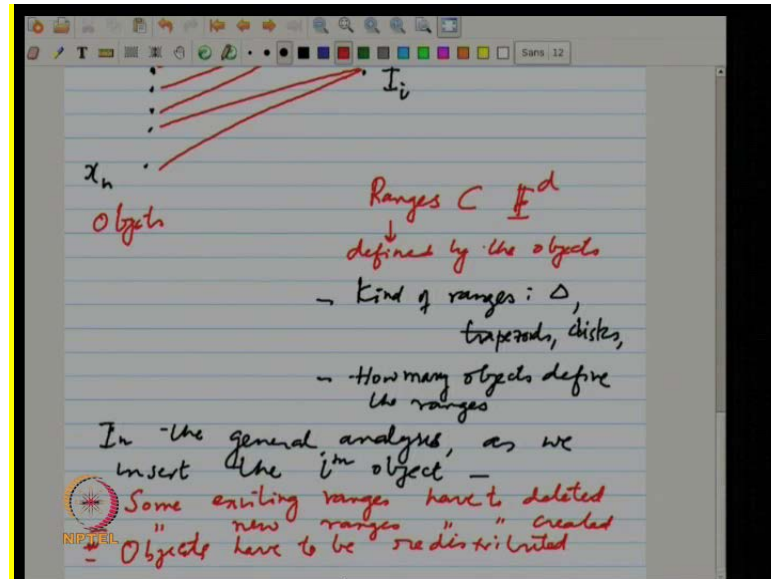 Sans 12
I_i
x_n
Objects
Ranges ⊂ E^d
↓
defined by the objects
- Kind of ranges : Δ,
trapezoids, disks,
- How many objects define
the ranges
In the general analysis, as we
insert the i^th object -
Some existing ranges have to deleted
" new ranges " " created
Objects have to be redistributed
NPTEL